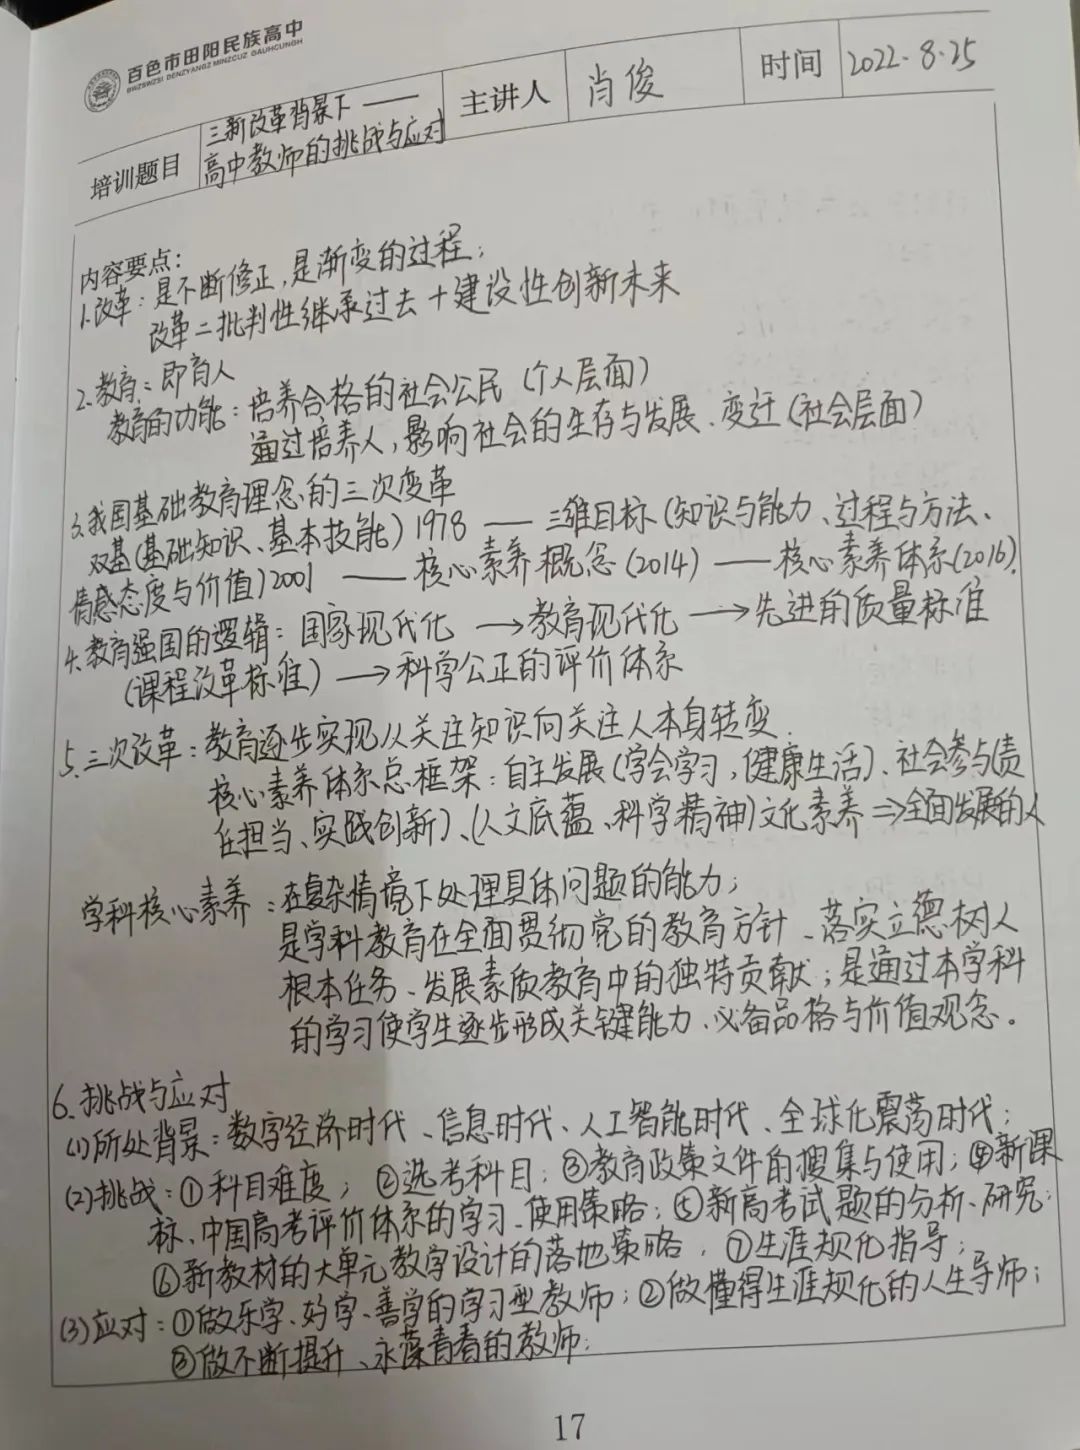 百色市田阳民族高中
BWZSWZSI DENZYANGZ MINZCUZ GAUHCUNGH
培训题目 三新改革背景下—— 主讲人 肖俊 时间 2022.8.25
高中教师的挑战与应对
内容要点：
1.改革：是不断修正，是渐变的过程；
改革=批判性继承过去+建设性创新未来
2.教育：即育人
教育的功能：培养合格的社会公民（个人层面）
通过培养人，影响社会的生存与发展、变迁（社会层面）
3.我国基础教育理念的三次变革
双基(基础知识、基本技能) 1978 —— 三维目标(知识与能力、过程与方法、
情感态度与价值)2001 —— 核心素养概念(2014) —— 核心素养体系(2016).
4.教育强国的逻辑：国家现代化 →教育现代化 →先进的质量标准
(课程改革标准) →科学公正的评价体系
5.三次改革：教育逐步实现从关注知识向关注人本身转变.
核心素养体系总框架：自主发展(学会学习,健康生活)、社会参与(责
任担当、实践创新)、(人文底蕴、科学精神)文化素养⇒全面发展的人
学科核心素养：在复杂情境下处理具体问题的能力；
是学科教育在全面贯彻党的教育方针、落实立德树人
根本任务、发展素质教育中的独特贡献；是通过本学科
的学习使学生逐步形成关键能力、必备品格与价值观念。
6.挑战与应对
(1)所处背景：数字经济时代、信息时代、人工智能时代、全球化震荡时代；
(2)挑战：①科目难度；②选考科目；③教育政策文件的搜集与使用；④新课
标、中国高考评价体系的学习、使用策略；⑤新高考试题的分析、研究；
⑥新教材的大单元教学设计的落地策略，⑦生涯规化指导；
(3)应对：①做乐学、好学、善学的学习型教师；②做懂得生涯规化的人生导师；
③做不断提升、永葆青春的教师；
17